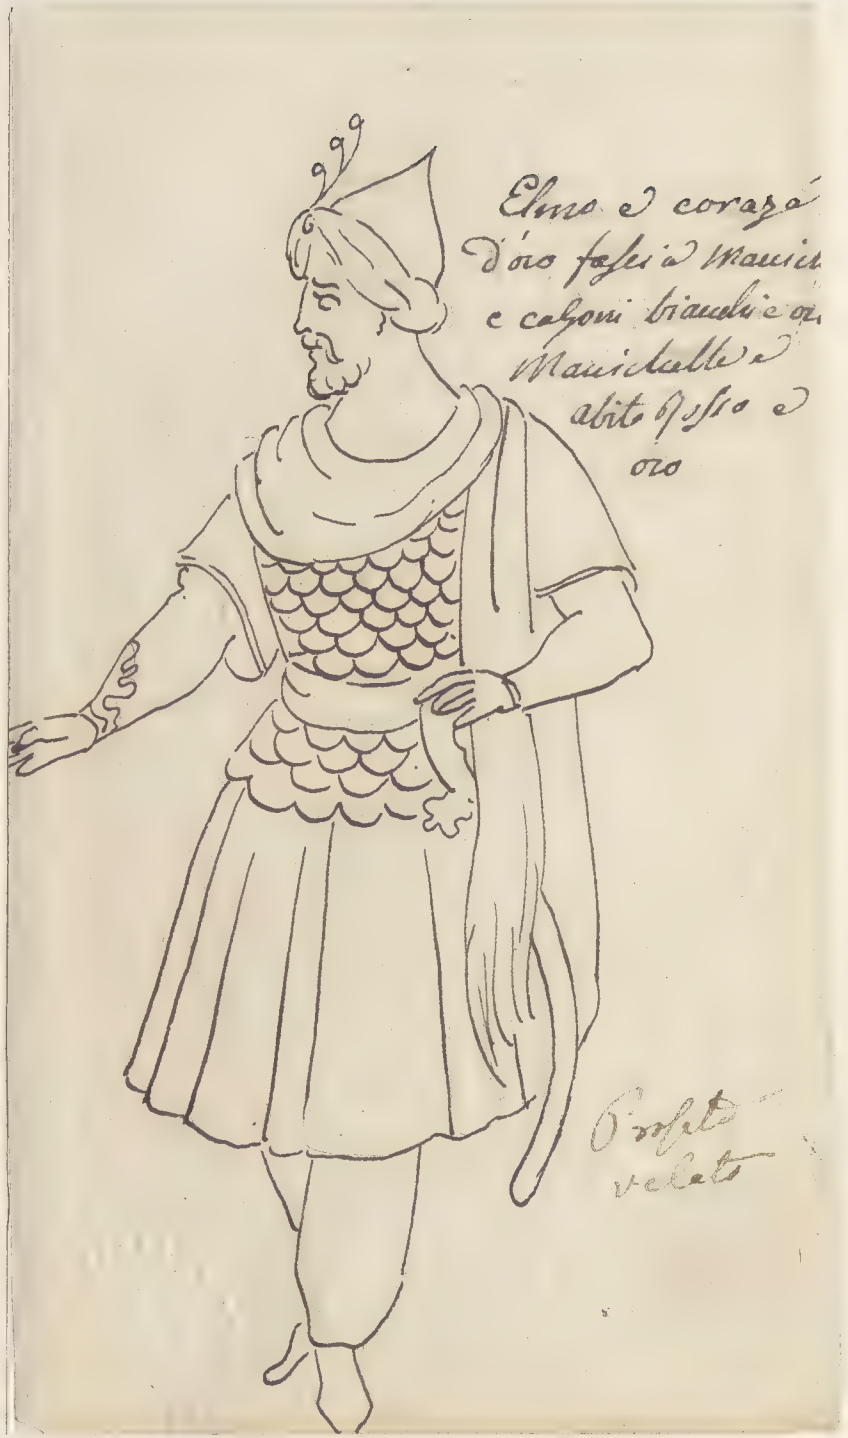 Elmo e coraza
d'oro fascia
e calzoni bianchi e
Manichette e
abito Rosso e
oro
Profeta
velato